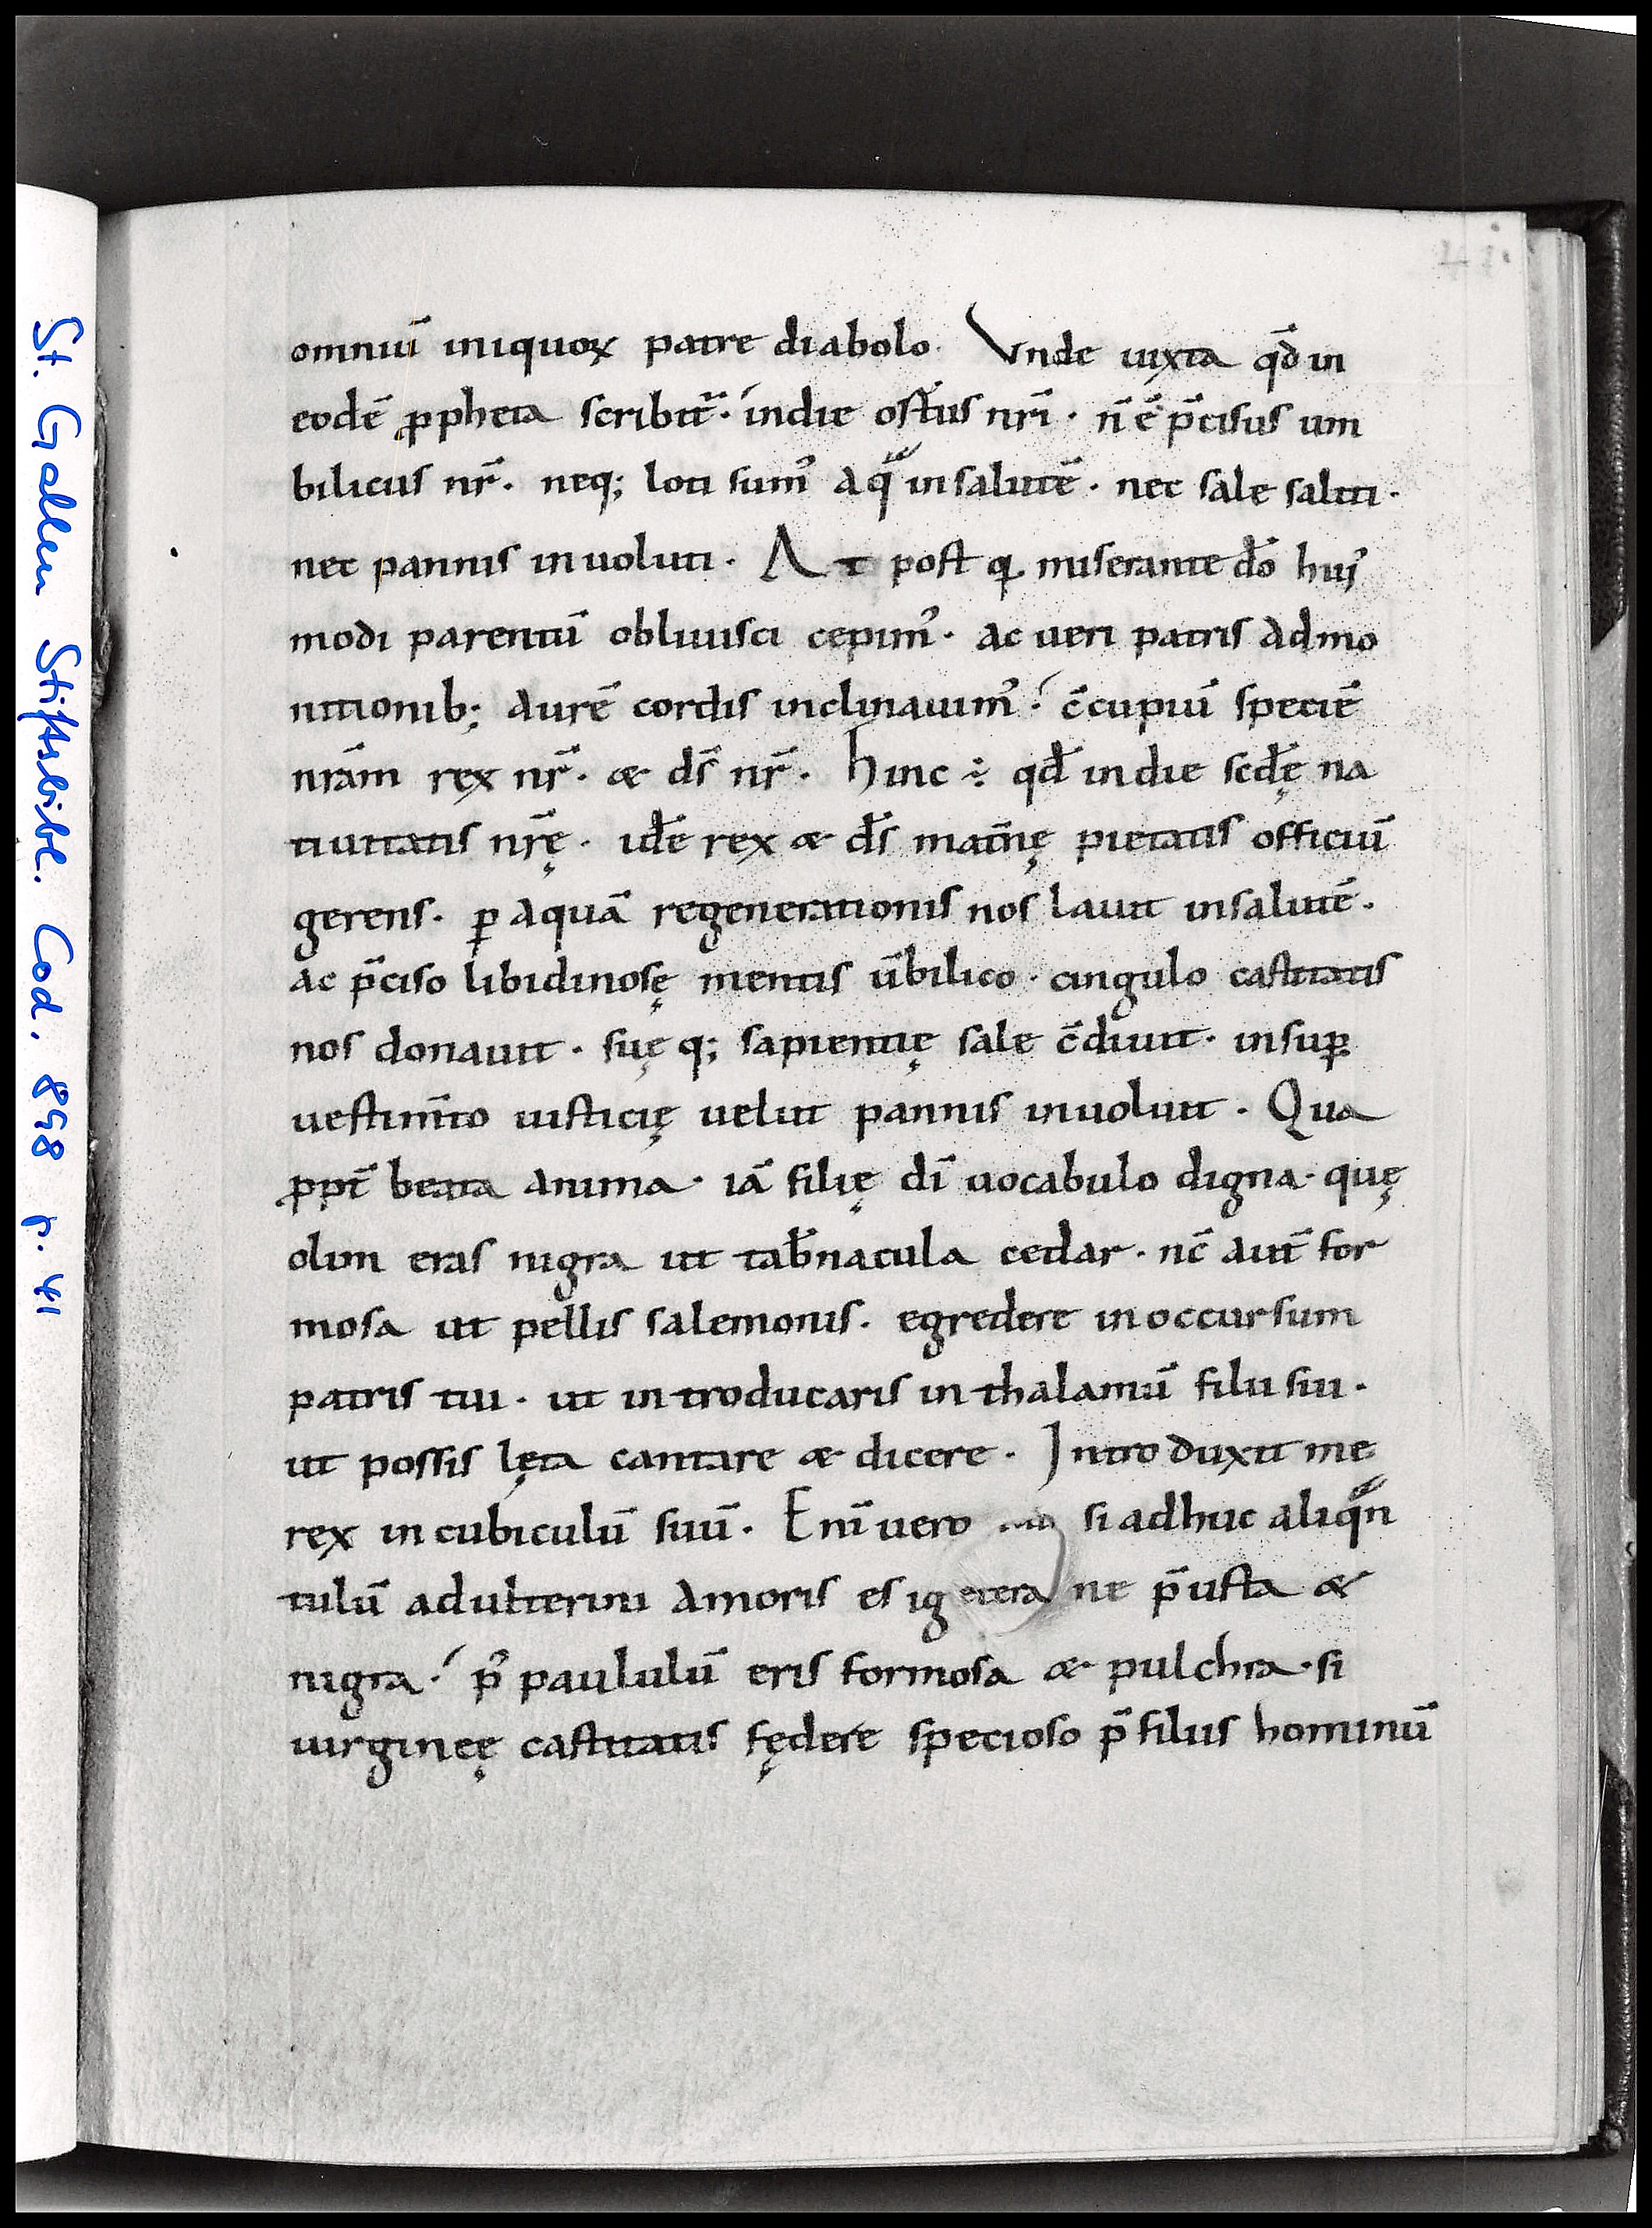 St. Gallen Stiftsbibl. Cod. 898 p. 41
41.
omniū iniquoꝝ patre diabolo. Vnde iuxta qđ in
eodē ꝓpheta scribit̄. in die ortus nr̄i. n̄ ē p̄cisus um
bilicus nr̄. neq; loti sum᾽ aq̄ in salutē. nec sale saliti.
nec pannis inuoluti. At post q̄ miserante dō hui᾽
modi parentū obliuisci cepim᾽. ac ueri patris admo
nitionib; aurē cordis inclinauim᾽. c̄cupiuī speciē
nr̄am rex nr̄. & ds̄ nr̄. Hinc ÷ qđ in die scdę na
tiuitatis nr̄ę. idē rex & ds̄ mat̄nę pietatis officiū
gerens. ꝑ aquā regenerationis nos lauit in salutē.
ac p̄ciso libidinosę mentis ūbilico. cingulo castitatis
nos donauit. suęq; sapientię sale c̄diuit. insuꝑ
uestim̄to iusticię uelut pannis inuoluit. Qua
ꝓpt̄ beata anima. iā filię dī uocabulo digna. quę
olim eras nigra ut tab̄nacula cedar. nc̄ aut̄ for
mosa ut pellis salemonis. egredere in occursum
patris tui. ut introducaris in thalamū filii sui.
ut possis lęta cantare & dicere. Introduxit me
rex in cubiculū suū. Enī uero si adhuc aliq̄n
tulū adulterini amoris es igne p̄usta &
nigra. p᾽ paululū eris formosa & pulchra. si
uirgineę castitatis fędere specioso p̄ filiis hominū